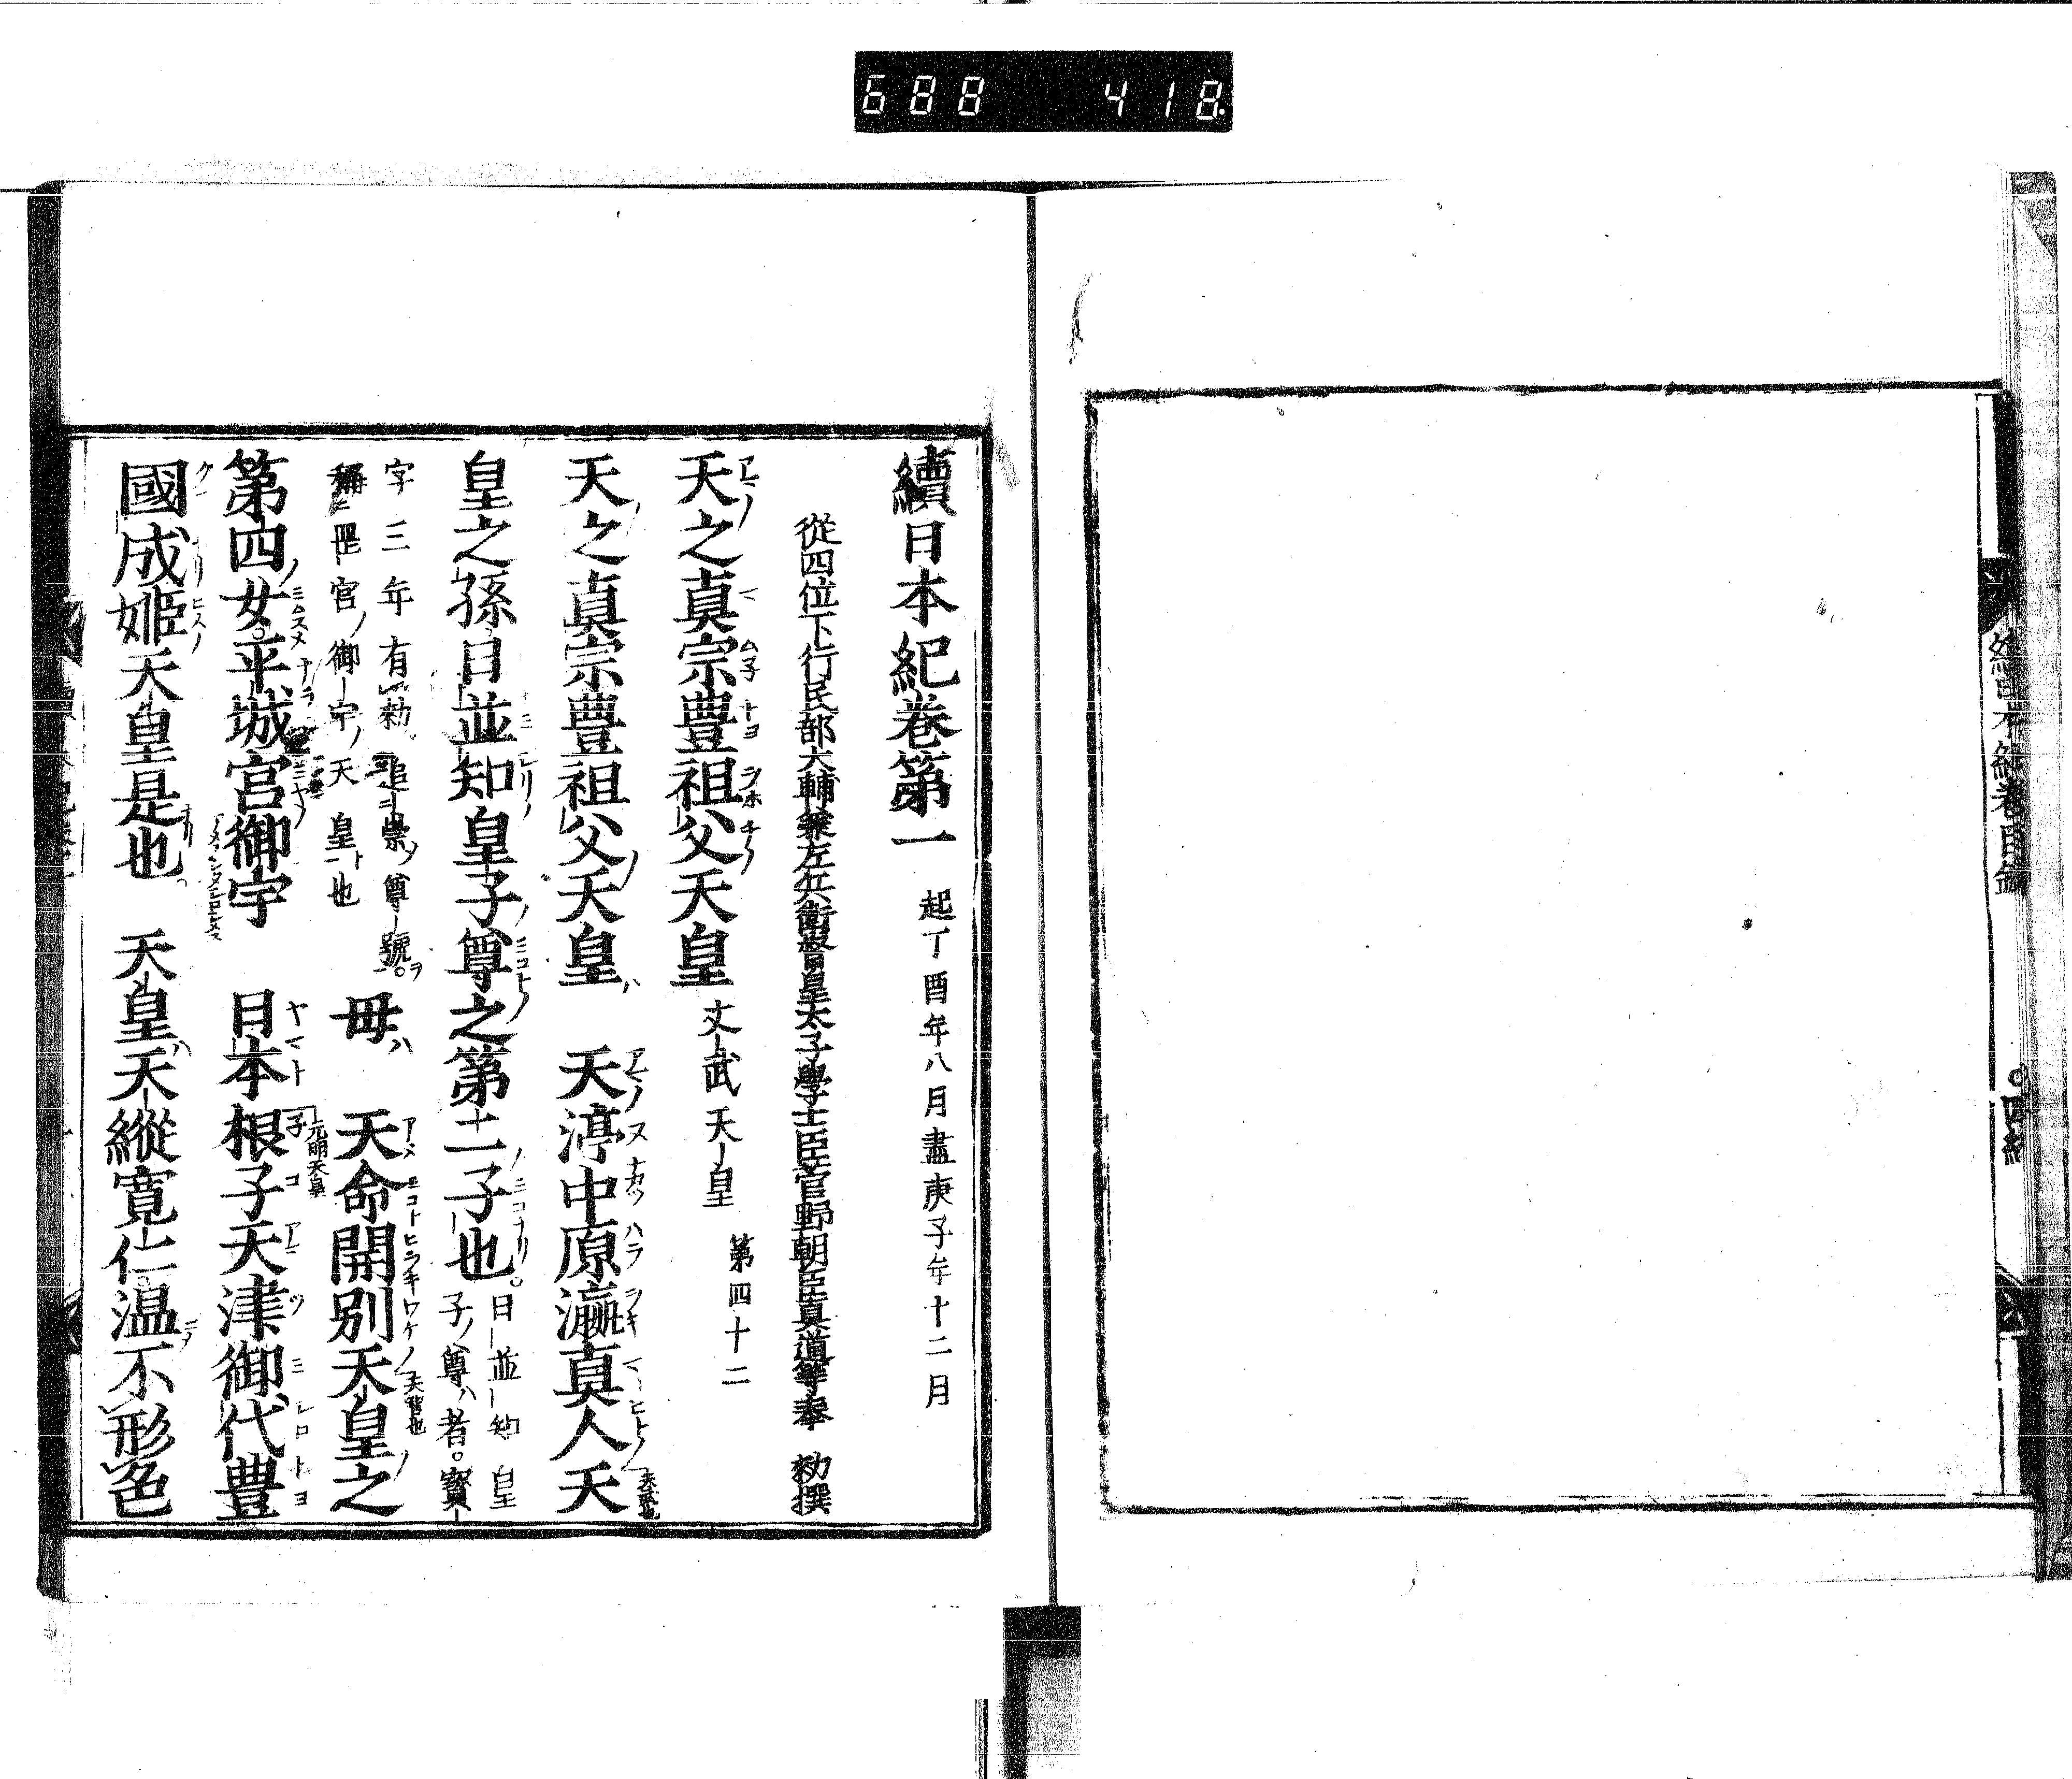 688 418
續日本紀卷第一 起丁酉年八月盡庚子年十二月
從四位下行民部大輔兼左兵衛督皇太子學士臣菅野朝臣真道等奉 勅撰
天之真宗豊祖父天皇 文武天皇 第四十二
天之真宗豊祖父天皇 天渟中原瀛真人天
皇之孫日並知皇子尊之第二子也 日並知皇
子尊者寳
字三年有勅追崇尊號
稱罡宮御宇天皇也
母 天命開別天皇之
第四女平城宮御宇 日本根子天津御代豊
國成姬天皇是也 天皇天縱寛仁温不形色